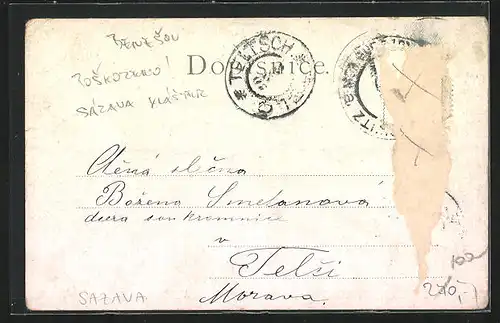 BENEŠOV
POŠKOZENO!
SÁZAVA KLÁŠTER
Dopisnice.
TELTSCH
Ctěná slečna
Božena Smetanová
dcera
v
Telči
Morava.
SAZAVA
102
270,-